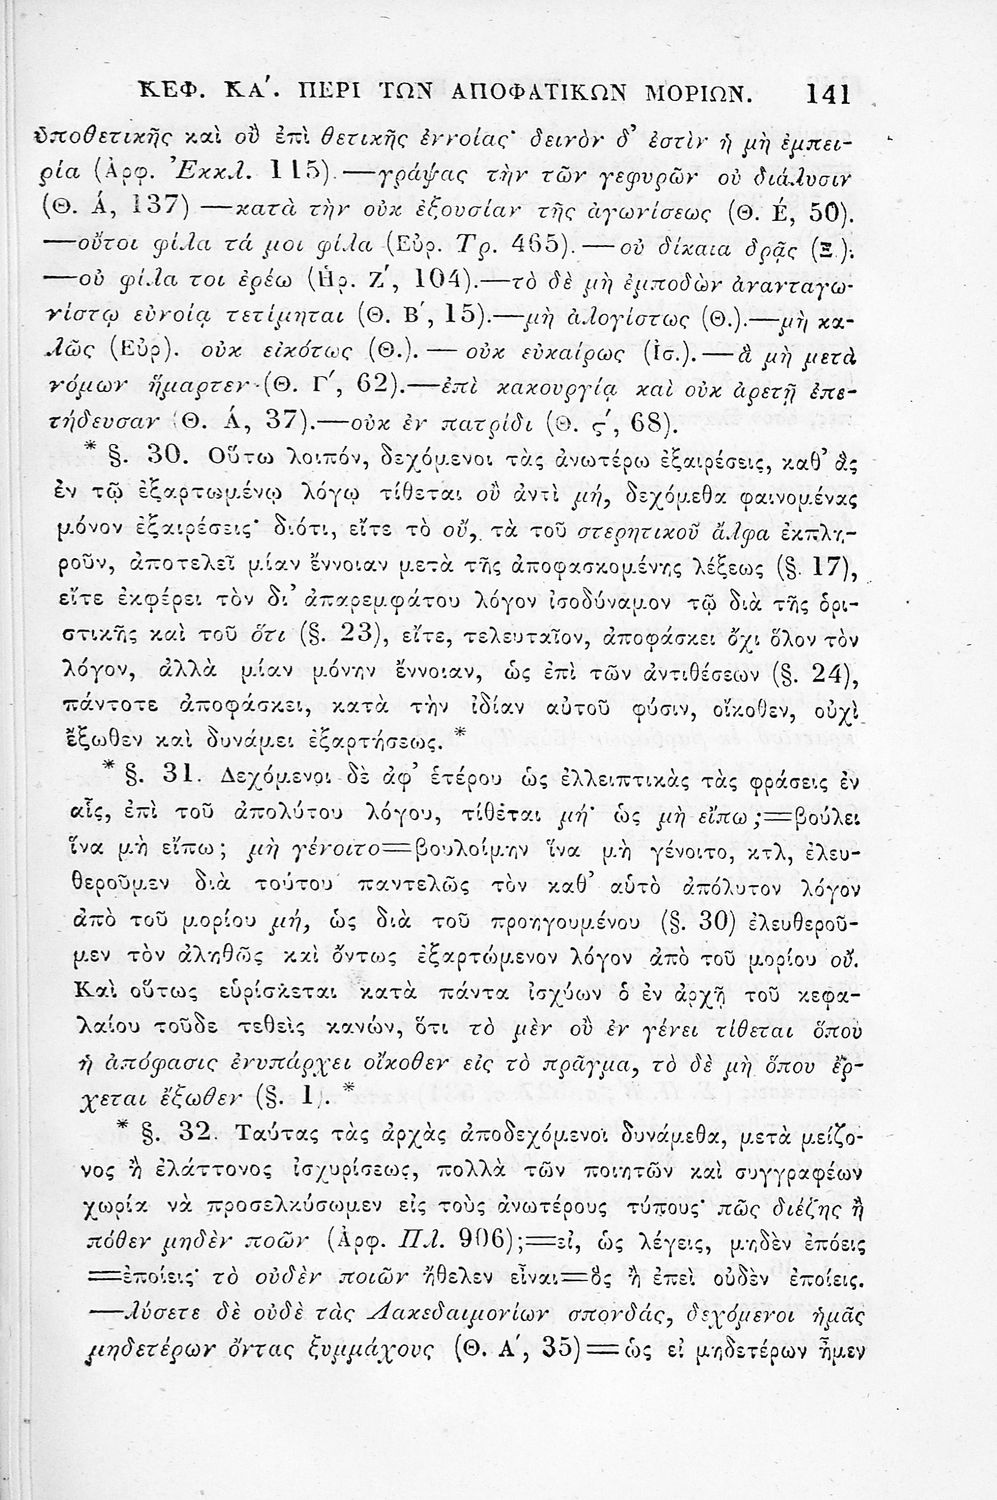 ΚΕΦ. ΚΑ΄. ΠΕΡΙ ΤΩΝ ΑΠΟΦΑΤΙΚΩΝ ΜΟΡΙΩΝ. 141
ὑποθετικῆς καὶ οὒ ἐπὶ θετικῆς ἐννοίας· δεινὸν δ’ ἐστὶν ἡ μὴ ἐμπει-
ρία (Ἀρφ. Ἐκκλ. 115).—γράψας τὴν τῶν γεφυρῶν οὐ διάλυσιν
(Θ. Ά, 137)—κατὰ τὴν οὐκ ἐξουσίαν τῆς ἀγωνίσεως (Θ. Έ, 50).
—οὔτοι φίλα τά μοι φίλα (Εὐρ. Τρ. 465).—οὐ δίκαια δρᾷς (Ξ.).
—οὐ φίλα τοι ἐρέω (Ἡρ. Ζ΄, 104).—τὸ δὲ μὴ ἐμποδὼν ἀνανταγω-
νίστῳ εὐνοίᾳ τετίμηται (Θ. Β΄, 15).—μὴ ἀλογίστως (Θ.).—μὴ κα-
λῶς (Εὐρ). οὐκ εἰκότως (Θ.).— οὐκ εὐκαίρως (Ἰσ.).—ἃ μὴ μετὰ
νόμων ἥμαρτεν (Θ. Γ΄, 62).—ἐπὶ κακουργίᾳ καὶ οὐκ ἀρετῇ ἐπε-
τήδευσαν (Θ. Ά, 37).—οὐκ ἐν πατρίδι (Θ. ς΄, 68).
* §. 30. Οὕτω λοιπόν, δεχόμενοι τὰς ἀνωτέρω ἐξαιρέσεις, καθ’ ἃς
ἐν τῷ ἐξαρτωμένῳ λόγῳ τίθεται οὒ ἀντὶ μή, δεχόμεθα φαινομένας
μόνον ἐξαιρέσεις· διότι, εἴτε τὸ οὔ, τὰ τοῦ στερητικοῦ ἄλφα ἐκπλη-
ροῦν, ἀποτελεῖ μίαν ἔννοιαν μετὰ τῆς ἀποφασκομένης λέξεως (§. 17),
εἴτε ἐκφέρει τὸν δι’ ἀπαρεμφάτου λόγον ἰσοδύναμον τῷ διὰ τῆς ὁρι-
στικῆς καὶ τοῦ ὅτι (§. 23), εἴτε, τελευταῖον, ἀποφάσκει ὄχι ὅλον τὸν
λόγον, ἀλλὰ μίαν μόνην ἔννοιαν, ὡς ἐπὶ τῶν ἀντιθέσεων (§. 24),
πάντοτε ἀποφάσκει, κατὰ τὴν ἰδίαν αὑτοῦ φύσιν, οἴκοθεν, οὐχὶ
ἔξωθεν καὶ δυνάμει ἐξαρτήσεως. *
* §. 31. Δεχόμενοι δὲ ἀφ’ ἑτέρου ὡς ἐλλειπτικὰς τὰς φράσεις ἐν
αἷς, ἐπὶ τοῦ ἀπολύτου λόγου, τίθεται μή· ὡς μὴ εἴπω;=βούλει
ἵνα μὴ εἴπω; μὴ γένοιτο=βουλοίμην ἵνα μὴ γένοιτο, κτλ, ἐλευ-
θεροῦμεν διὰ τούτου παντελῶς τὸν καθ’ αὑτὸ ἀπόλυτον λόγον
ἀπὸ τοῦ μορίου μή, ὡς διὰ τοῦ προηγουμένου (§. 30) ἐλευθεροῦ-
μεν τὸν ἀληθῶς καὶ ὄντως ἐξαρτώμενον λόγον ἀπὸ τοῦ μορίου οὔ.
Καὶ οὕτως εὑρίσκεται κατὰ πάντα ἰσχύων ὁ ἐν ἀρχῇ τοῦ κεφα-
λαίου τοῦδε τεθεὶς κανών, ὅτι τὸ μὲν οὒ ἐν γένει τίθεται ὅπου
ἡ ἀπόφασις ἐνυπάρχει οἴκοθεν εἰς τὸ πρᾶγμα, τὸ δὲ μὴ ὅπου ἔρ-
χεται ἔξωθεν (§. 1). *
* §. 32. Ταύτας τὰς ἀρχὰς ἀποδεχόμενοι δυνάμεθα, μετὰ μείζο-
νος ἢ ἐλάττονος ἰσχυρίσεως, πολλὰ τῶν ποιητῶν καὶ συγγραφέων
χωρία νὰ προσελκύσωμεν εἰς τοὺς ἀνωτέρους τύπους· πῶς διέζης ἢ
πόθεν μηδὲν ποῶν (Ἀρφ. Πλ. 906);=εἰ, ὡς λέγεις, μηδὲν ἐπόεις
=ἐποίεις· τὸ οὐδὲν ποιῶν ἤθελεν εἶναι=ὃς ἢ ἐπεὶ οὐδὲν ἐποίεις.
—λύσετε δὲ οὐδὲ τὰς Λακεδαιμονίων σπονδάς, δεχόμενοι ἡμᾶς
μηδετέρων ὄντας ξυμμάχους (Θ. Α΄, 35)=ὡς εἰ μηδετέρων ἦμεν